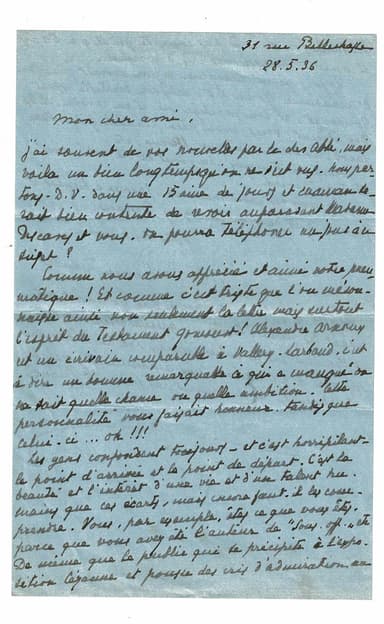 31 rue Bellechasse
28.5.36
Mon cher ami,
J'ai souvent de vos nouvelles par le cher Abbé, mais
voilà un bien long temps qu'on ne s'est vus. Nous par
tons - D.V. dans une 15aine de jours et maman se
rait bien contente de revoir auparavant Madame
Descaves et vous. On pourra téléphoner un jour au
sujet ?
Comme nous avons apprécié et aimé votre pneu
matique ! Et comme c'est triste que l'on mécon
naisse ainsi non seulement la lettre mais surtout
l'esprit du Testament Goncourt ! Alexandre Arnoux
est un écrivain comparable à Valery-Larbaud, c'est
à dire un homme remarquable à qui a manqué on
ne sait quelle chance ou quelle ambition. Cette
personnalité vous faisait honneur. Tandis que
celui-ci ... oh !!!
Les gens confondent toujours - et c'est horripilant -
le point d'arrivée et le point de départ. C'est la
beauté et l'intérêt d'une vie et d'un talent hu
mains que ces écarts, mais encore faut-il les com
prendre. Vous, par exemple, êtes ce que vous êtes
parce que vous avez été l'auteur de "Sous-offs", etc
De même que le public qui se précipite à l'expo
sition Cézanne et pousse des cris d'admiration, au